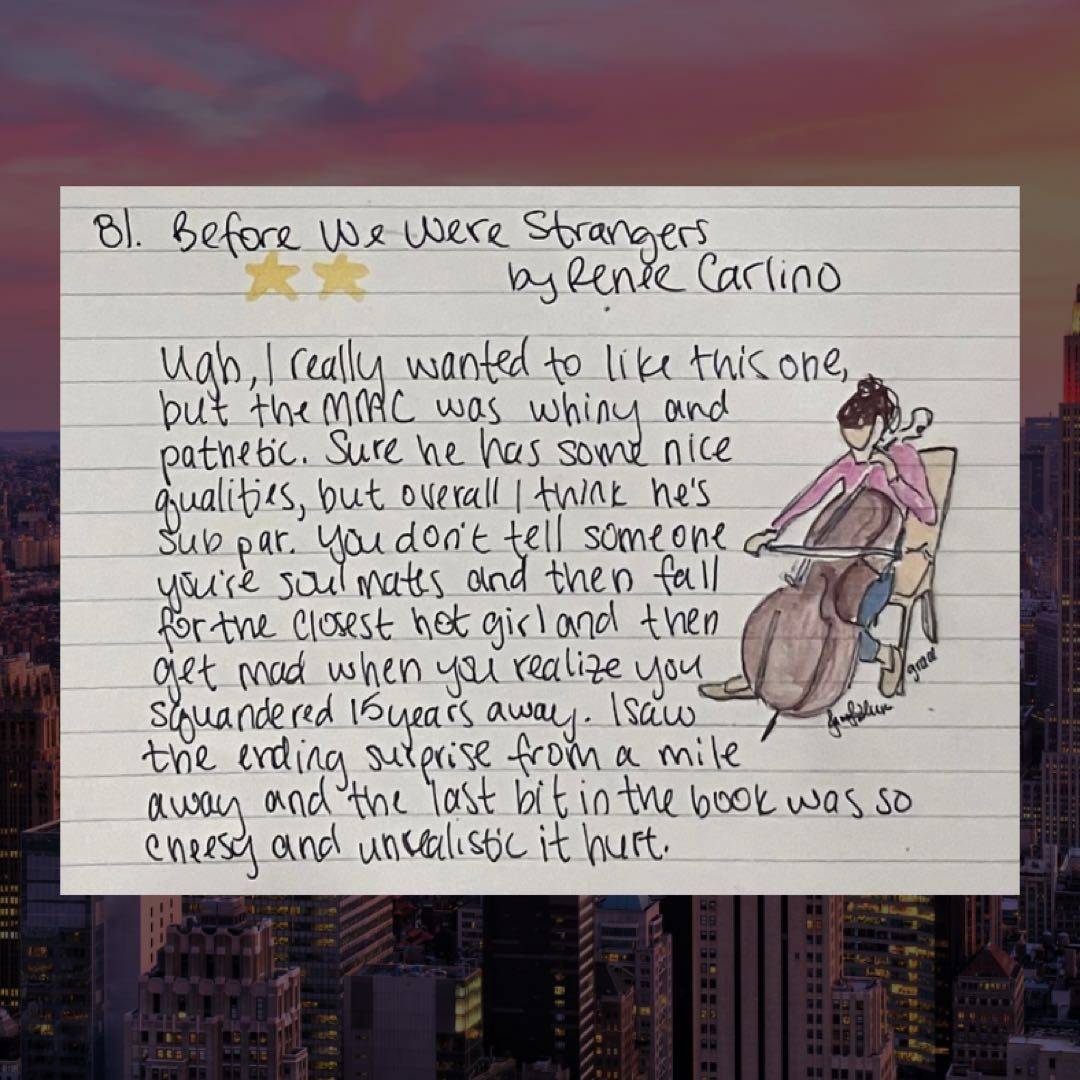 81. Before We Were Strangers
by Renée Carlino
Ugh, I really wanted to like this one,
but the MMC was whiny and
pathetic. Sure he has some nice
qualities, but overall I think he's
sub par. You don't tell someone
you're soul mates and then fall
for the closest hot girl and then
get mad when you realize you
squandered 15 years away. I saw
the ending surprise from a mile
away and the last bit in the book was so
cheesy and unrealistic it hurt.